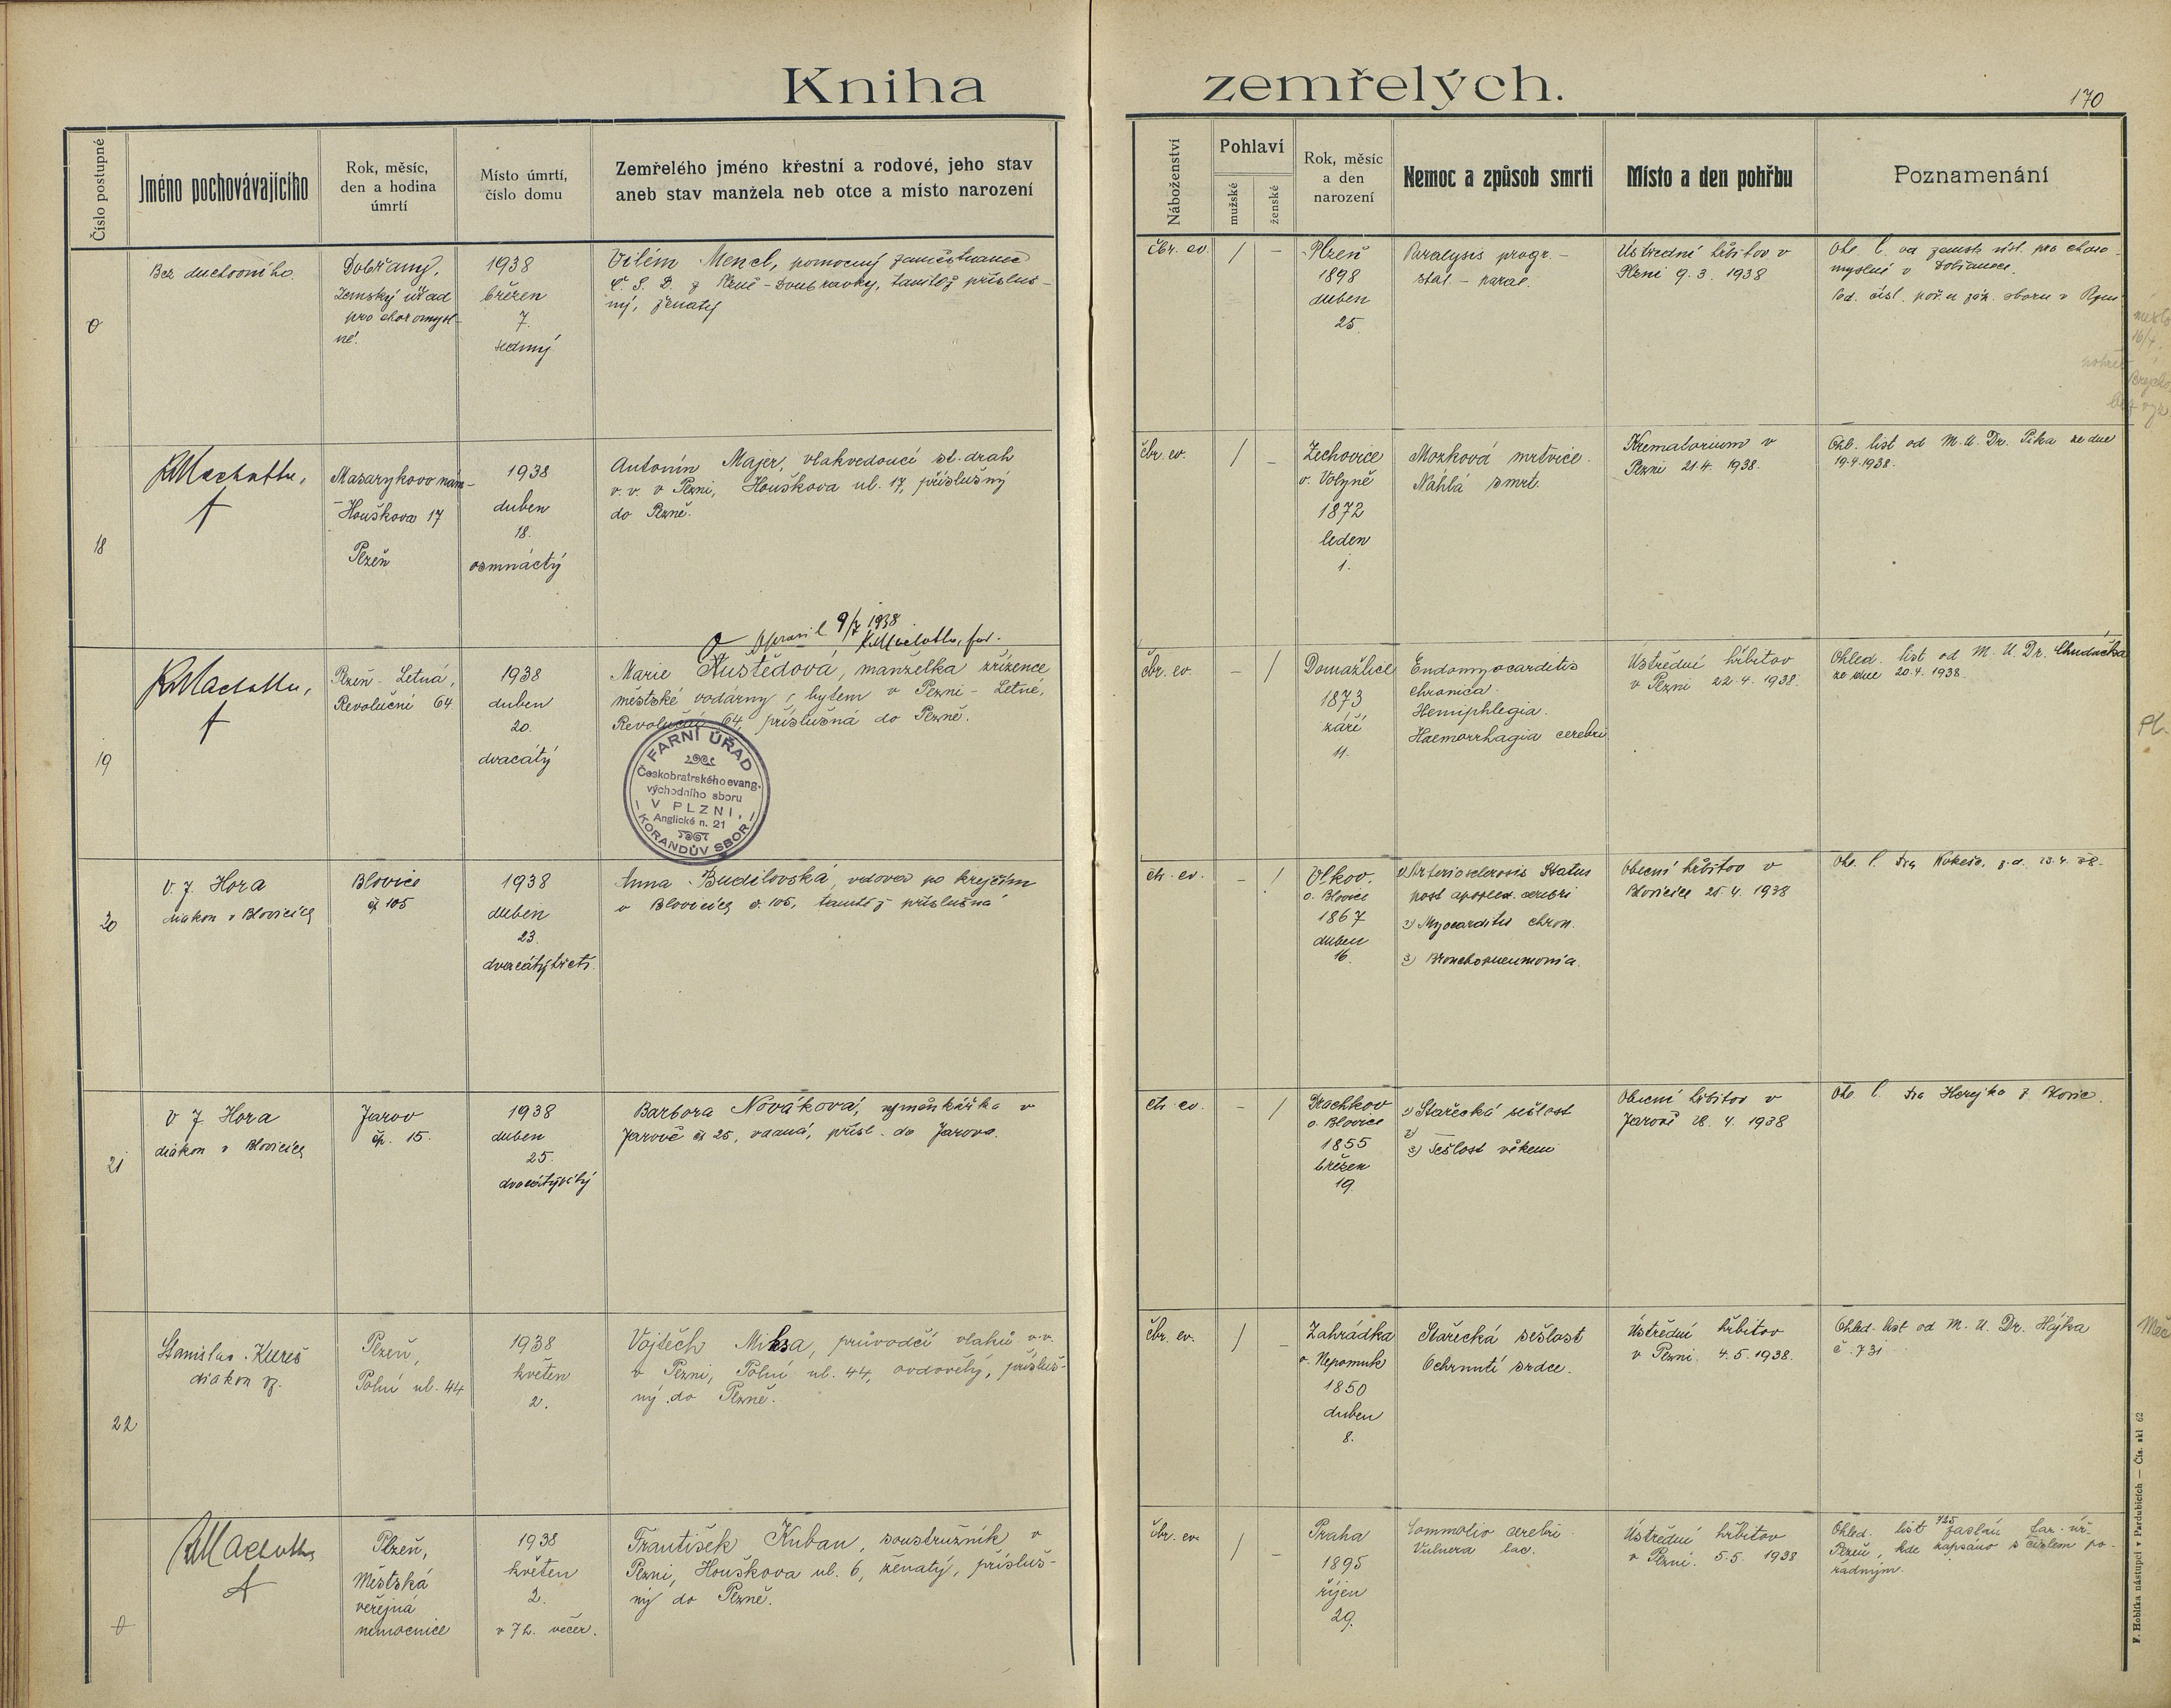 Kniha zemřelých.
170
Číslo postupné
Jméno pochovávajícího
Rok, měsíc,
den a hodina
úmrtí
Místo úmrtí,
číslo domu
Zemřelého jméno křestní a rodové, jeho stav
aneb stav manžela neb otce a místo narození
Náboženství
Pohlaví
mužské
ženské
Rok, měsíc
a den
narození
Nemoc a způsob smrti
Místo a den pohřbu
Poznamenání
0
Bez duchovního
Dobřany,
Zemský úřad
pro choromysl-
né.
1938
březen
7.
sedmý
Vilém Mencl, pomocný zaměstnanec
Č. S. D. z Plzně-Doubravky, tamtéž přísluš-
ný, ženatý
čbr. ev.
/
–
Plzeň
1898
duben
25.
Paralysis progr. –
stal. – paral.
Ústřední hřbitov v
Plzni 9. 3. 1938
Ohl. l. od zemsk. úst. pro choro-
myslné v Dobřanech.
18
KMachotka,
f
Masarykovo nám-
Houškova 17
Plzeň
1938
duben
18.
osmnáctý
Antonín Majer, vlakvedoucí st. drah
v. v. v Plzni, Houškova ul. 17, příslušný
do Plzně.
čbr. ev.
/
–
Zechovice
o. Volyně
1872
leden
1.
Mozková mrtvice.
Náhlá smrt.
Krematorium v
Plzni 21.4. 1938.
Ohl. list od M. U. Dr. Pika ze dne
19.4.1938.
Opravil 9/7 1938
KMachotka, far.
19
KMachotka,
f
Plzeň - Letná,
Revoluční 64
1938
duben
20.
dvacátý
Marie Hustědová, manželka zřízence
městské vodárny, bytem v Plzni - Letné,
Revoluční 64, příslušná do Plzně.
FARNÍ ÚŘAD
Českobratrského evang.
východního sboru
V PLZNI,
Anglické n. 21
KORANDŮV SBOR
čbr. ev.
–
/
Domažlice
1873
září
11.
Endomyocarditis
chronica.
Hemiphlegia.
Haemorrhagia cerebri
Ústřední hřbitov
v Plzni 22.4. 1938.
Ohled. list od M. U. Dr. Chudáčka
ze dne 20.4. 1938.
Pl.
20
V. J. Hora
diakon v Blovicích
Blovice
čp 105
1938
duben
23.
dvacátýtřetí.
Anna Budilovská, vdova po krejčím
v Blovicích č. 105, tamtéž příslušná
čh. ev.
–
/
Vlkov,
o. Blovice
1867
duben
16.
1) Arteriosclerosis Status
post apoplex. cerebri
2) Myocarditis chron.
3) Bronchopneumonia.
Obecní hřbitov v
Blovicích 25. 4. 1938
Ohl. l. Dra Kokeše, z. d. 23. 4. 38.
21
V. J. Hora
diakon v Blovicích
Jarov
čp. 15.
1938
duben
25.
dvacátýpátý
Barbora Nováková, výměnkářka v
Jarově čp 25, vdaná, přísl. do Jarova.
čh. ev.
–
/
Drachkov
o. Blovice
1855
březen
19.
1) Stařecká sešlost
2)
3) Sešlost věkem
Obecní hřbitov v
Jarově 28. 4. 1938
Ohl. l. Dra Herejka z Blovic.
22
Stanislav Kureš
diakon vz.
Plzeň,
Polní ul. 44
1938
květen
2.
Vojtěch Miksa, průvodčí vlaků v.v.
v Plzni, Polní ul. 44, ovdovělý, přísluš-
ný do Plzně.
čbr. ev.
/
–
Zahrádka
o. Nepomuk
1850
duben
8.
Stařecká sešlost
Ochrnutí srdce.
Ústřední hřbitov
v Plzni. 4.5. 1938.
Ohled. list od M. U. Dr. Hájka
č. 731
0
KMachotka
f
Plzeň,
Městská
veřejná
nemocnice
1938
květen
2.
v 7 h. večer.
František Kuban, soustružník v
Plzni, Houškova ul. 6, ženatý, přísluš-
ný do Plzně.
čbr. ev.
/
–
Praha
1895
říjen
29.
Commotio cerebri
Vulnera lac.
Ústřední hřbitov
v Plzni. 5.5. 1938
Ohled. list 725 zaslán far. úř.
Plzeň, kde zapsáno s číslem po-
řadným.
F. Hoblíka nástupci v Pardubicích — Čís. skl 62